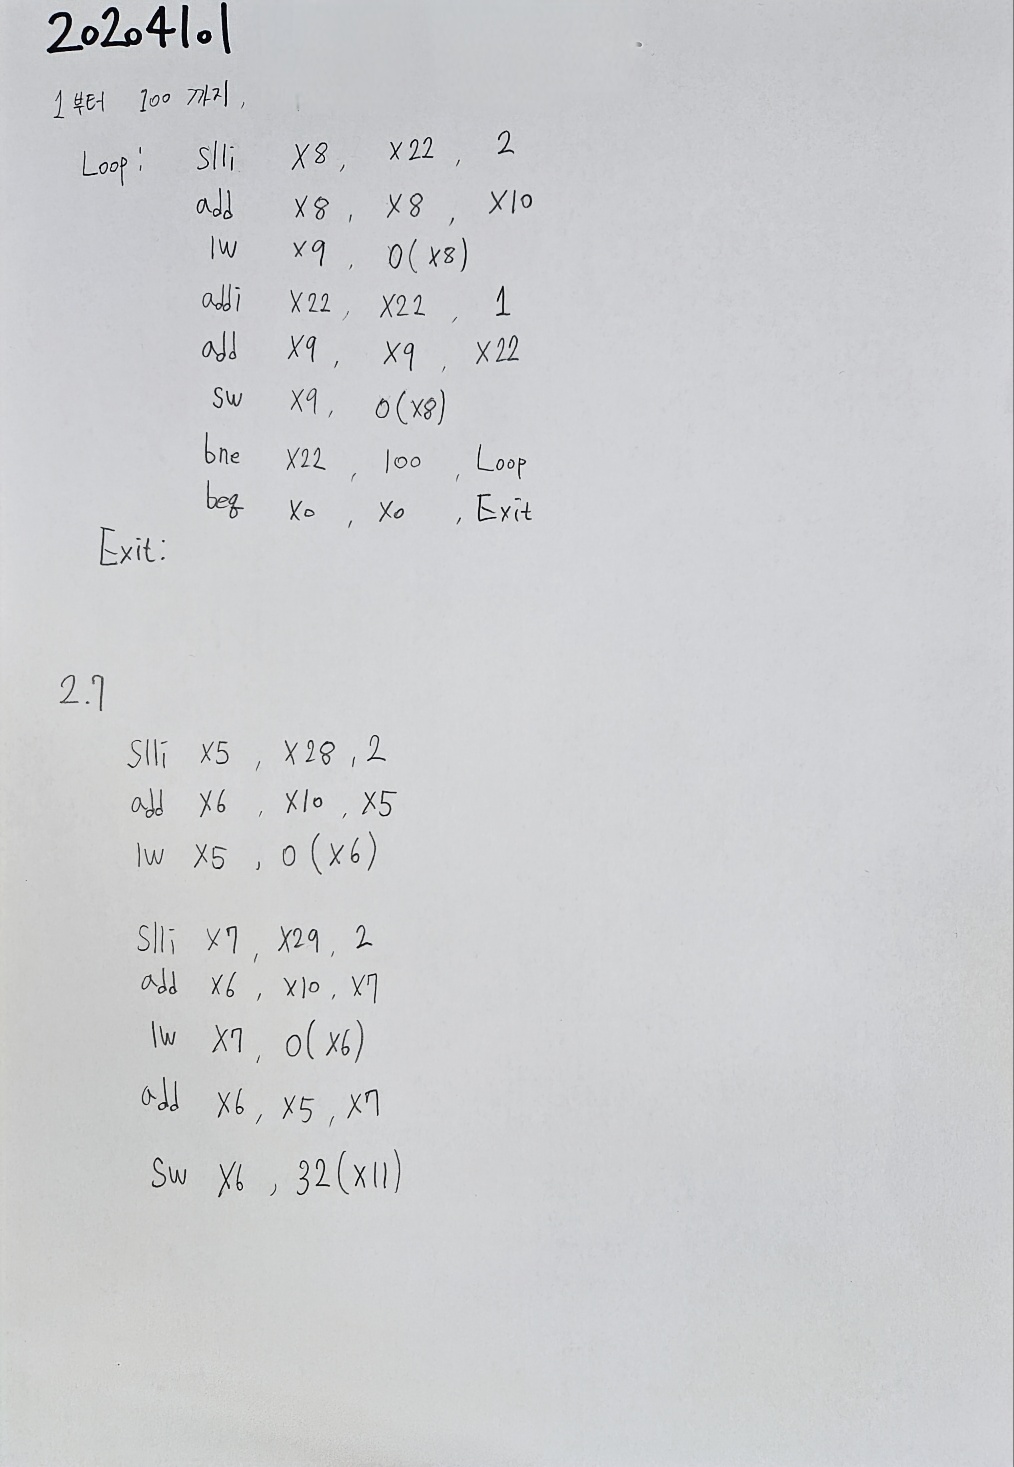 20204101
1부터 100 까지,
Loop: slli x8, x22, 2
add x8, x8, x10
lw x9, 0(x8)
addi x22, x22, 1
add x9, x9, x22
sw x9, 0(x8)
bne x22, 100, Loop
beq x0, x0, Exit
Exit:
2.7
slli x5, x28, 2
add x6, x10, x5
lw x5, 0(x6)
slli x7, x29, 2
add x6, x10, x7
lw x7, 0(x6)
add x6, x5, x7
sw x6, 32(x11)